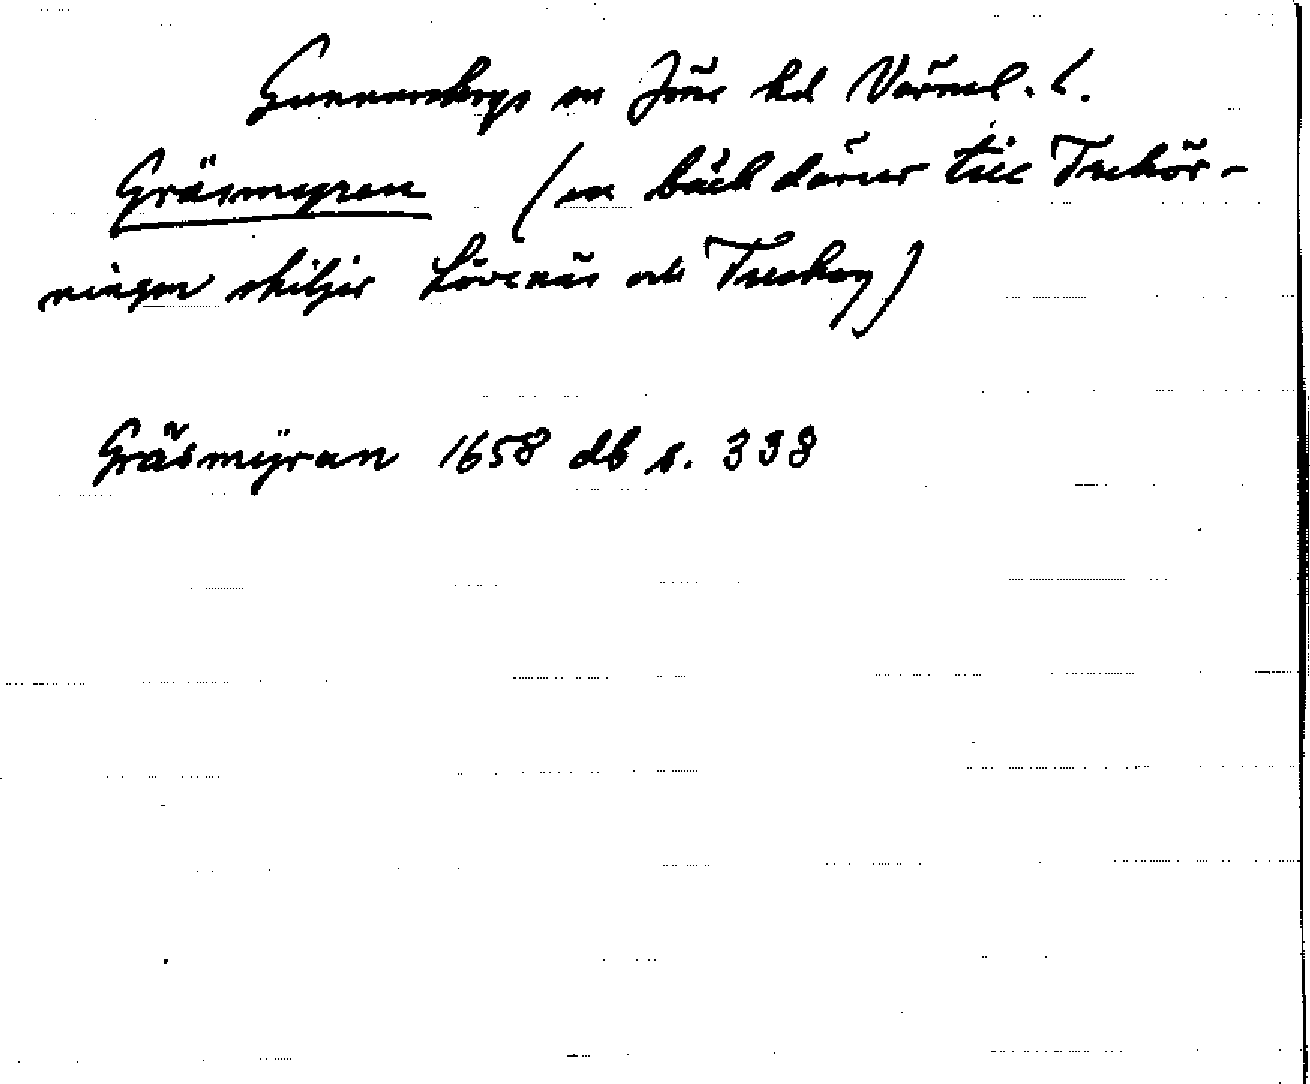 Gunnarskogs sn Jösse hd Värml. l.
Gräsmyren (en bäck därur till Trehör-
ningen skiljer Lövenäs och Treskog)
Gräsmÿran 1658 db s. 338